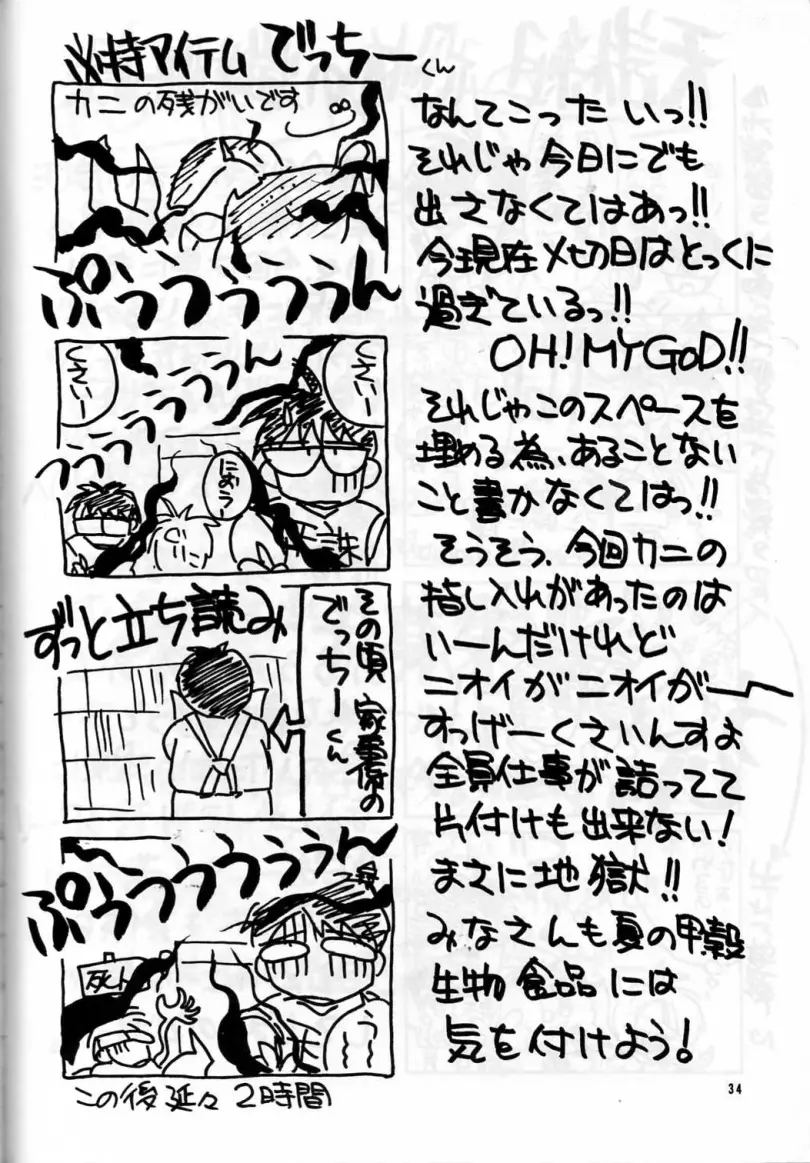 必特アイテム でっちーくん
カニの残がいです
ぷうつうううん
くさいー
くさいー
つうつうううん
におうー
誅
その頃 家事係の
でっちーくん
ずっと立ち読み
ぷうつうううぅん
死
う
この後延々2時間
なんてこった いっ!!
それじゃ今日にでも
出さなくてはあっ!!
今現在〆切日はとっくに
過ぎているっ!!
OH! MY GOD!!
それじゃこのスペースを
埋める為、あることない
こと書かなくてはっ!!
そうそう、今回カニの
指し入れがあったのは
いーんだけれど
ニオイがニオイがー
すっげーくさいんすよ
全員仕事が詰ってて
片付けも出来ない!
まさに地獄!!
みなさんも夏の甲殻
生物食品には
気を付けよう!
34